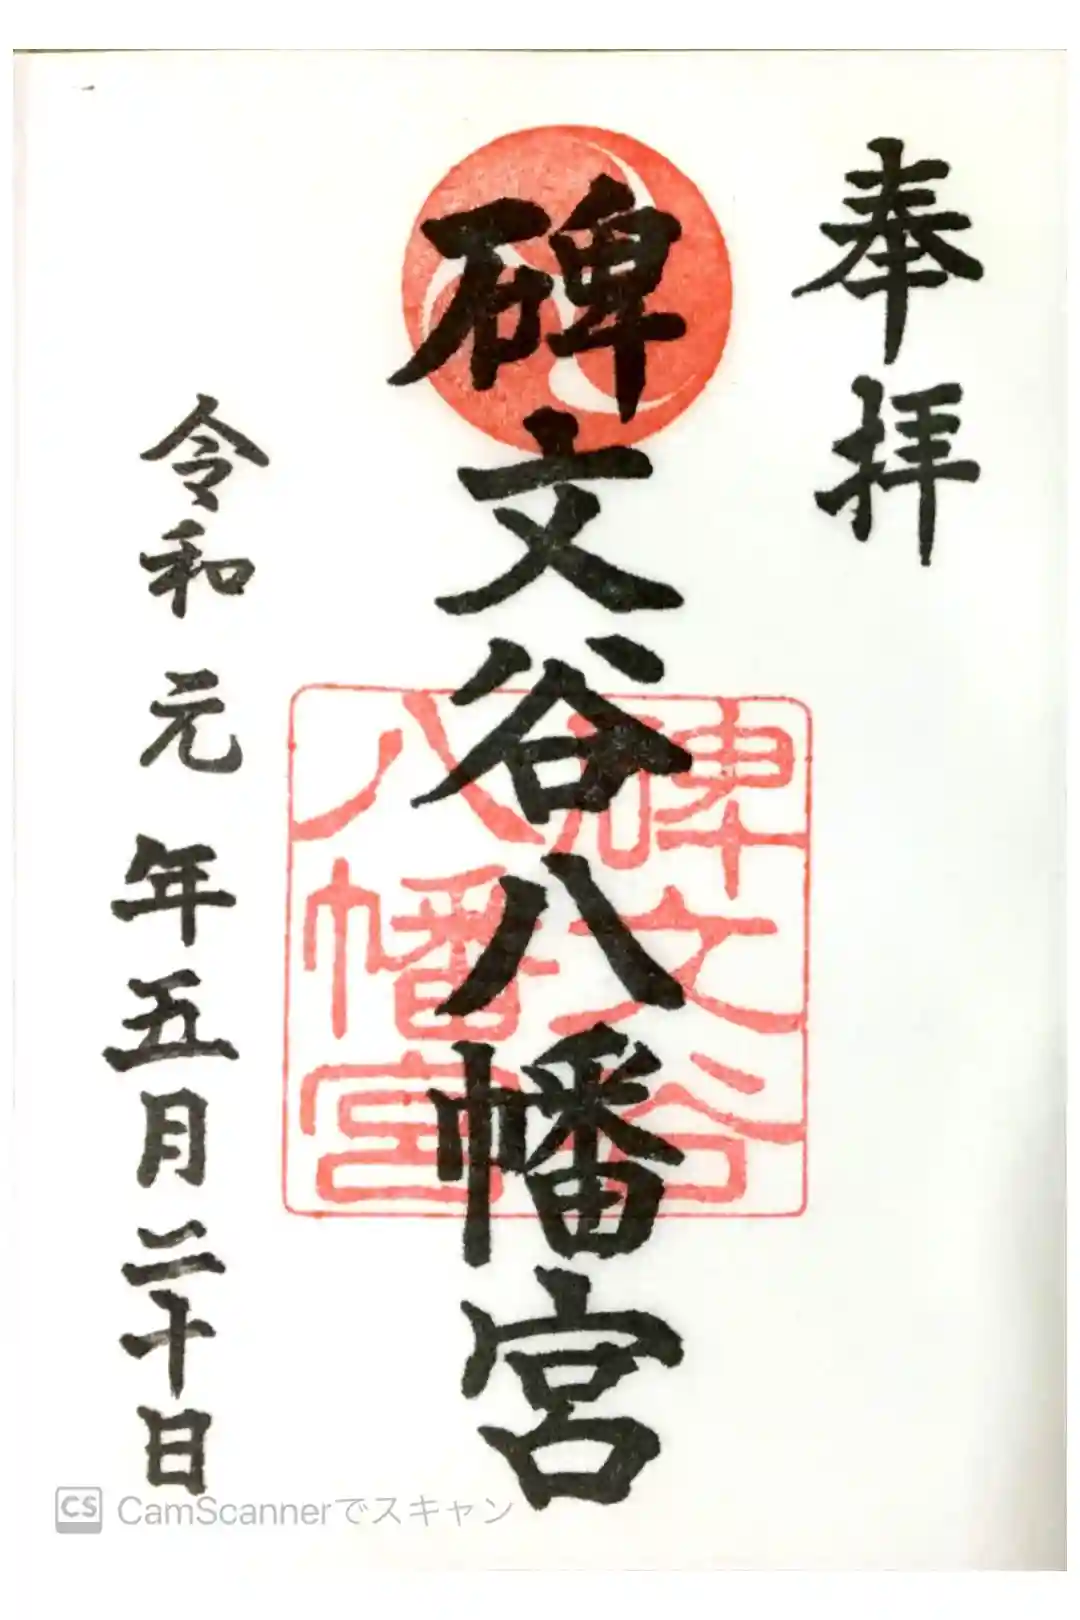 奉拝
碑文谷八幡宮
碑文谷
八幡宮
令和元年五月二十日
CS CamScannerでスキャン